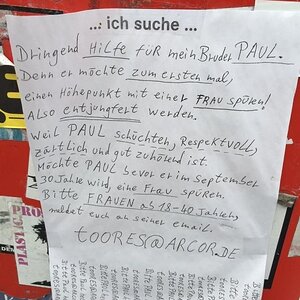 ... ich suche ...
Dringend Hilfe für mein Bruder PAUL.
Denn er möchte zum ersten mal,
einen Höhepunkt mit einer FRAU spüren!
Also entjungfert werden.
Weil PAUL schüchten, Respektvoll,
zärtlich und gut zuhörend ist.
Möchte PAUL bevor er im september
30 Jahre wird, eine Frau spüren.
Bitte FRAUEN ab 18-40 Jahren,
meldet euch an seiner email.
tOORES@ARCOR.DE